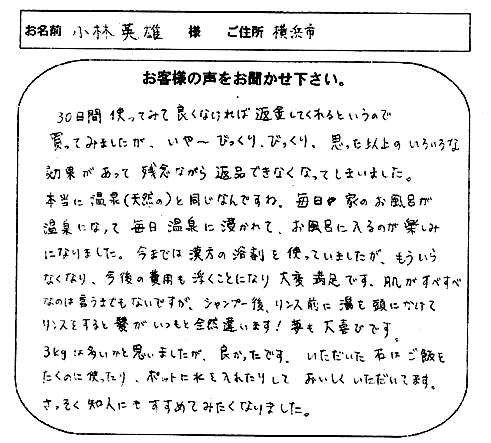 お名前 小林英雄 様 ご住所 横浜市
お客様の声をお聞かせ下さい。
30日間使ってみて良くなければ返金してくれるというので
買ってみましたが、いや〜びっくり、びっくり。思った以上のいろいろな
効果があって残念ながら返品できなくなってしまいました。
本当に温泉(天然の)と同じなんですね。毎日家のお風呂が
温泉になって毎日温泉に浸かれて、お風呂に入るのが楽しみ
になりました。今までは漢方の浴剤を使っていましたが、もういら
なくなり、今後の費用も浮くことになり大変満足です。肌がすべすべ
なのは言うまでもないですが、シャンプー後、リンス前に湯を頭にかけて
リンスをすると髪がいつもと全然違います!妻も大喜びです。
3kgは多いかと思いましたが、良かったです。いただいた石はご飯を
たくのに使ったり、ポットに水を入れたりしておいしくいただいてます。
さっそく知人にもすすめてみたくなりました。